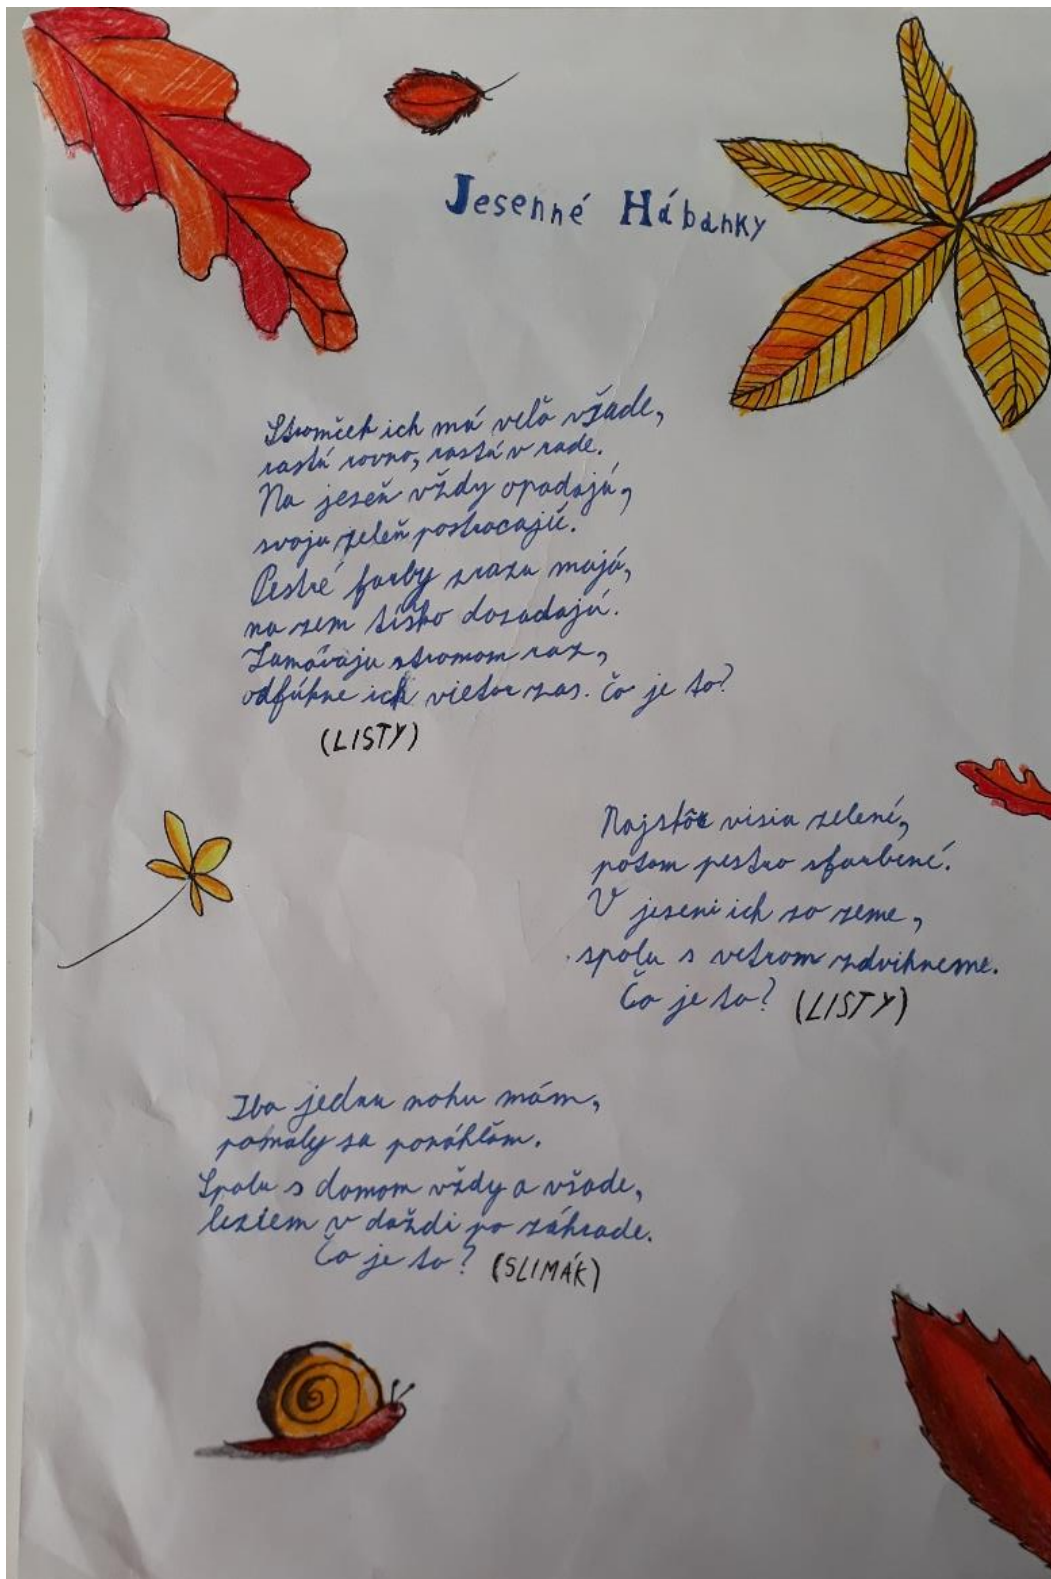 Jesenné Hábanky
Stromček ich má veľa všade,
rastú rovno, rastú v rade.
Na jeseň vždy opadajú,
svoju zeleň postrácajú.
Pestré farby zrazu majú,
na zem ticho dosadajú.
Zamávajú stromom raz,
odfúkne ich vietor zas. Čo je to?
(LISTY)
Najskôr visia zelené,
potom pestro sfarbené.
V jeseni ich zo zeme,
spolu s vetrom zdvihneme.
Čo je to? (LISTY)
Iba jednu nohu mám,
pomaly sa ponáhľam.
Spolu s domom vždy a všade,
leziem v daždi po záhrade.
Čo je to? (SLIMÁK)